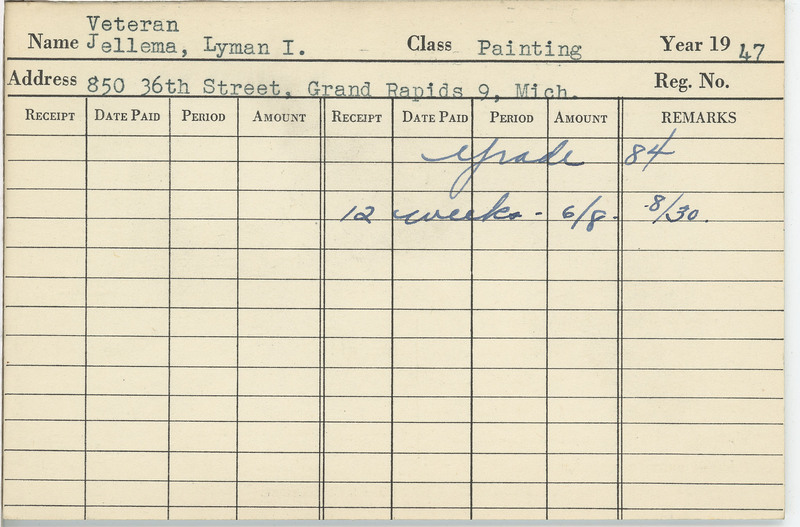 Veteran
Name Jellema, Lyman I. Class Painting Year 19 47
Address 850 36th Street, Grand Rapids 9, Mich. Reg. No.
RECEIPT DATE PAID PERIOD AMOUNT RECEIPT DATE PAID PERIOD AMOUNT REMARKS
Grade 84
12 weeks - 6/8 - 8/30.